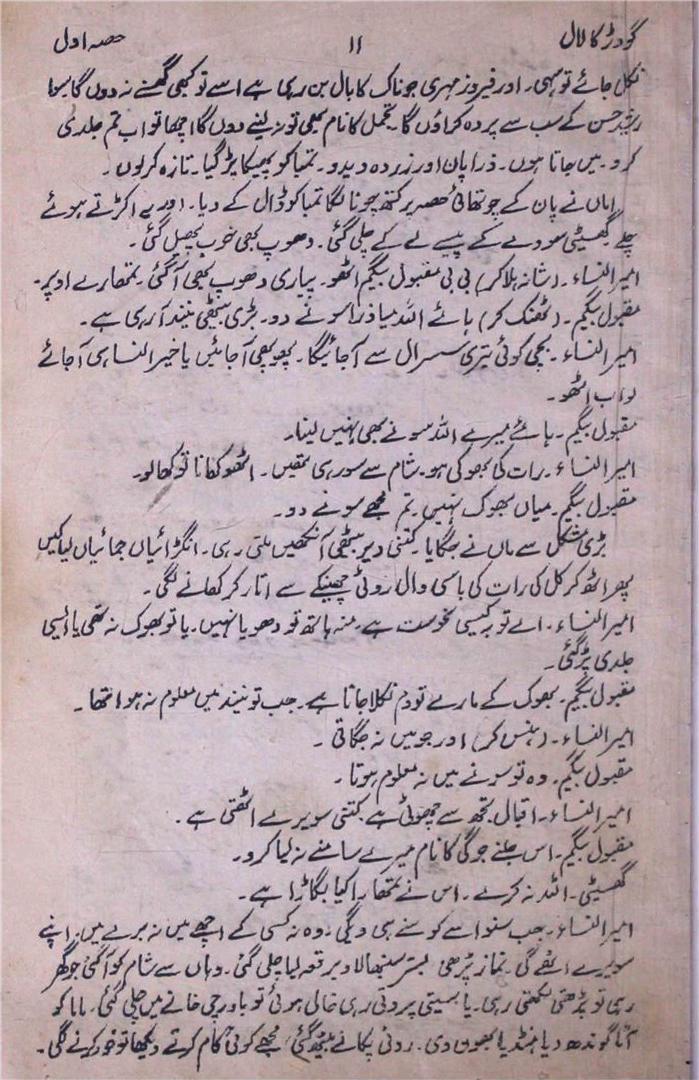 گودڑ کا لال ۱۱ حصہ اول
نکل جائے تو سہی۔ اور فیروز مہری جو ناک کا بال بن رہی ہے اسے تو کبھی گھسنے نہ دوں گا
حسن کے سب سے پردہ کراؤں گا۔ تجمل کا نام بھی تو نہ لینے دوں گا اچھا تو اب تم جلدی
کرو۔ میں جاتا ہوں۔ ذرا پان اور زردہ دیدو۔ تمباکو پھیکا پڑ گیا۔ تازہ کر لوں۔
اماں نے پان کے چوتھائی حصہ پر کتھ چونا لگا تمباکو ڈال کے دیا۔ اور یہ اکڑتے ہوئے
چلے گھسیٹی سودے کے پیسے لے کے چلی گئی۔ دھوپ بھی خوب پھیل گئی۔
امیر النساء۔ (شانہ ہلا کر) بی بی مقبول بیگم اٹھو۔ پیاری دھوپ بھی آ گئی۔ تمھارے اوپر۔
مقبول بیگم۔ (ٹھنک کر) ہائے اللہ میاں ذرا سونے دو۔ بڑی میٹھی نیند آ رہی ہے۔
امیر النساء۔ بچی کوئی تیری سسرال سے آ جائیگا۔ پھوپھی آ جائیں یا خیر النسا ہی آ جائے
اب اٹھو۔
مقبول بیگم۔ ہائے میرے اللہ سونے بھی نہیں لینا۔
امیر النساء۔ رات کی بھوکی ہو۔ شام سے سو رہی تھیں۔ اٹھو کھانا تو کھا لو۔
مقبول بیگم۔ میاں بھوک نہیں۔ تم مجھے سونے دو۔
بڑی مشکل سے ماں نے جگایا۔ کتنی دیر بیٹھی آنکھیں ملتی رہی۔ انگڑائیاں جمائیاں لیا کیں
پھر اٹھ کر کل کی رات کی باسی وال روٹی چھینکے سے اتار کر کھانے لگی۔
امیر النساء۔ اے تو یہ کیسی نحوست ہے۔ منہ ہاتھ تو دھویا نہیں۔ یا تو بھوک نہ تھی یا ایسی
جلدی پڑ گئی۔
مقبول بیگم۔ بھوک کے مارے تو دم نکلا جاتا ہے۔ جب تو نیند میں معلوم نہ ہوا تھا۔
امیر النساء۔ (ہنس کر) اور جو میں نہ جگاتی۔
مقبول بیگم۔ وہ تو سونے میں نہ معلوم ہوتا۔
امیر النساء۔ اقبال تجھ سے چھوٹی ہے کتنی سویرے اٹھتی ہے۔
مقبول بیگم۔ اس جلنے جوگی کا نام میرے سامنے نہ لیا کرو۔
گھسیٹی۔ اللہ نہ کرے۔ اس نے تمھارا کیا بگاڑا ہے۔
امیر النساء۔ جب سنو اسے کوسنے ہی دیگی۔ وہ نہ کسی کے اچھے میں نہ برے میں۔ اپنے
سویرے اٹھے گی۔ نماز پڑھی بستر سنبھالا برقعہ لیا چلی گئی۔ وہاں سے شام کو آ گئی جو گھر
رہی تو پڑھتی لکھتی رہی۔ یا سیتی پروتی رہی خالی ہوئی تو باورچی خانے میں چلی گئی۔ ماما کو
آٹا گوندھ دیا ہنڈیا بھون دی۔ روٹی پکانے بیٹھ گئی۔ مجھے کوئی کام کرتے دیکھا تو خود کرنے لگی۔